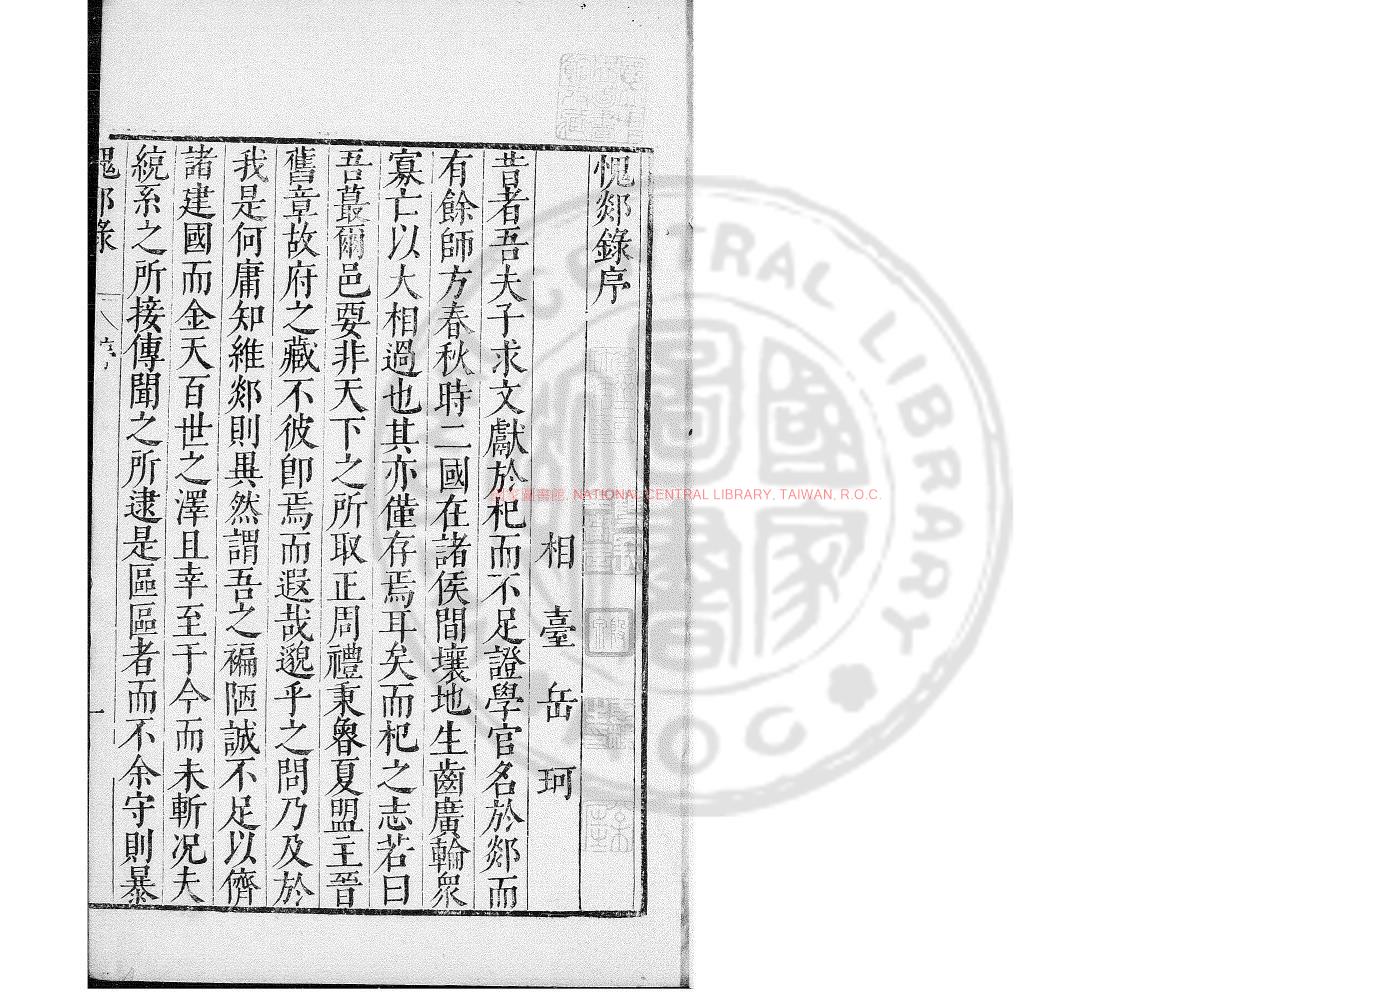 愧郯錄序
相臺岳珂
昔者吾夫子求文獻於杞而不足證學官名於郯而
有餘師方春秋時二國在諸侯間壤地生齒廣輪衆
寡亡以大相過也其亦僅存焉耳矣而杞之志若曰
吾蕞爾邑要非天下之所取正周禮秉魯夏盟主晉
舊章故府之藏不彼卽焉而遐哉邈乎之問乃及於
我是何庸知維郯則異然謂吾之褊陋誠不足以儕
諸建國而金天百世之澤且幸至于今而未斬况夫
統系之所接傳聞之所逮是區區者而不余守則暴
愧郯錄
序
一
國家圖書館, NATIONAL CENTRAL LIBRARY, TAIWAN, R.O.C.
CENTRAL LIBRARY
R.O.C.
國家圖書